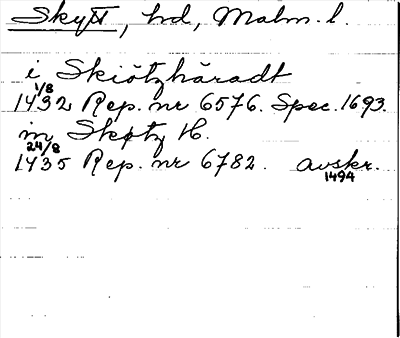 Skytt, hd, Malm. l.
i Skiötzhäradt
1/8
1432 Rep. nr 6576. Spec. 1693.
in Skøtz H.
24/8
1435 Rep. nr 6782. avskr.
1494